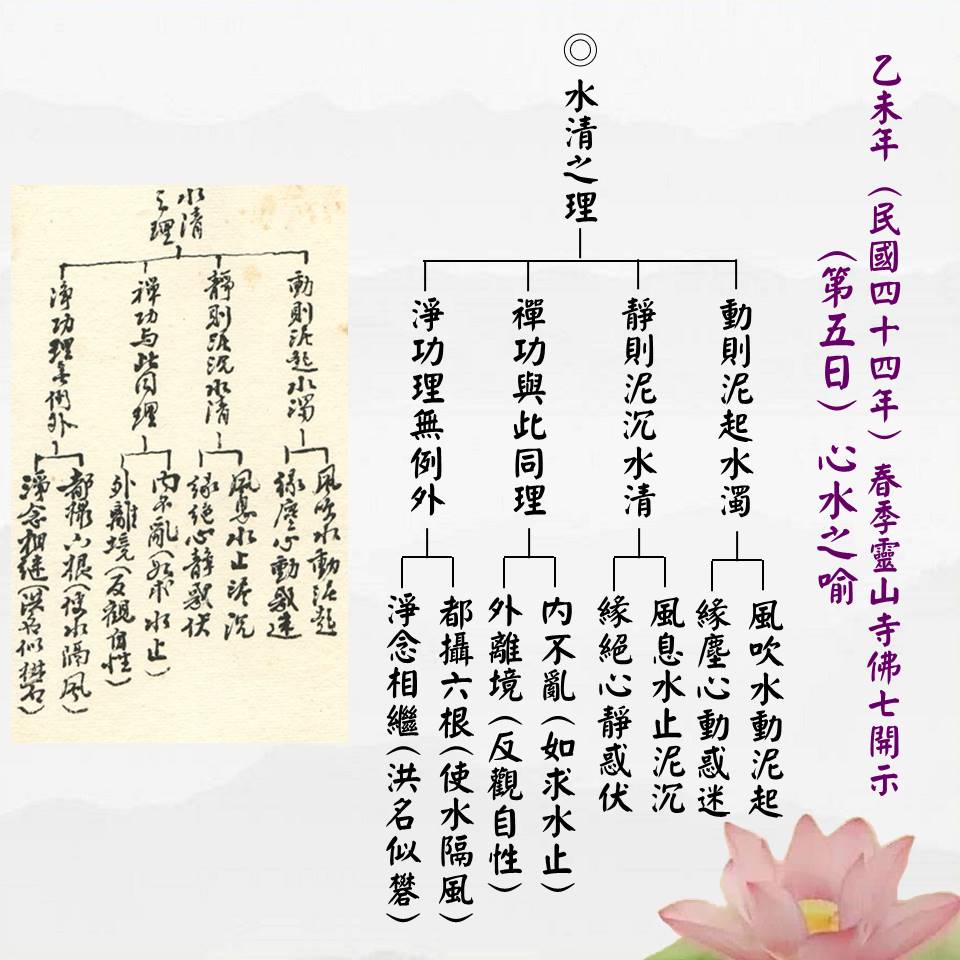 乙未年（民國四十四年）春季靈山寺佛七開示
（第五日）心水之喻
◎水清之理
動則泥起水濁
風吹水動泥起
緣塵心動惑迷
靜則泥沉水清
風息水止泥沉
緣絕心靜惑伏
禪功與此同理
內不亂（如求水止）
外離境（反觀自性）
淨功理無例外
都攝六根（使水隔風）
淨念相繼（洪名似礬）
水清
之理
動則泥起水濁
風吹水動泥起
緣塵心動惑迷
靜則泥沉水清
風息水止泥沉
緣絕心靜惑伏
禪功与此同理
內不亂（如求水止）
外離境（反觀自性）
淨功理無例外
都攝六根（使水隔風）
淨念相繼（洪名似礬）